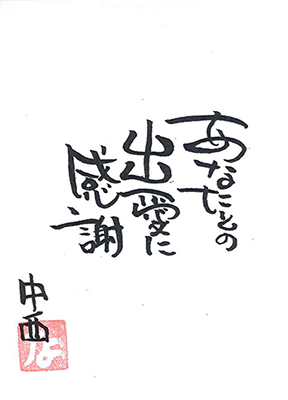 あなたとの
出愛に
感謝
中西
な